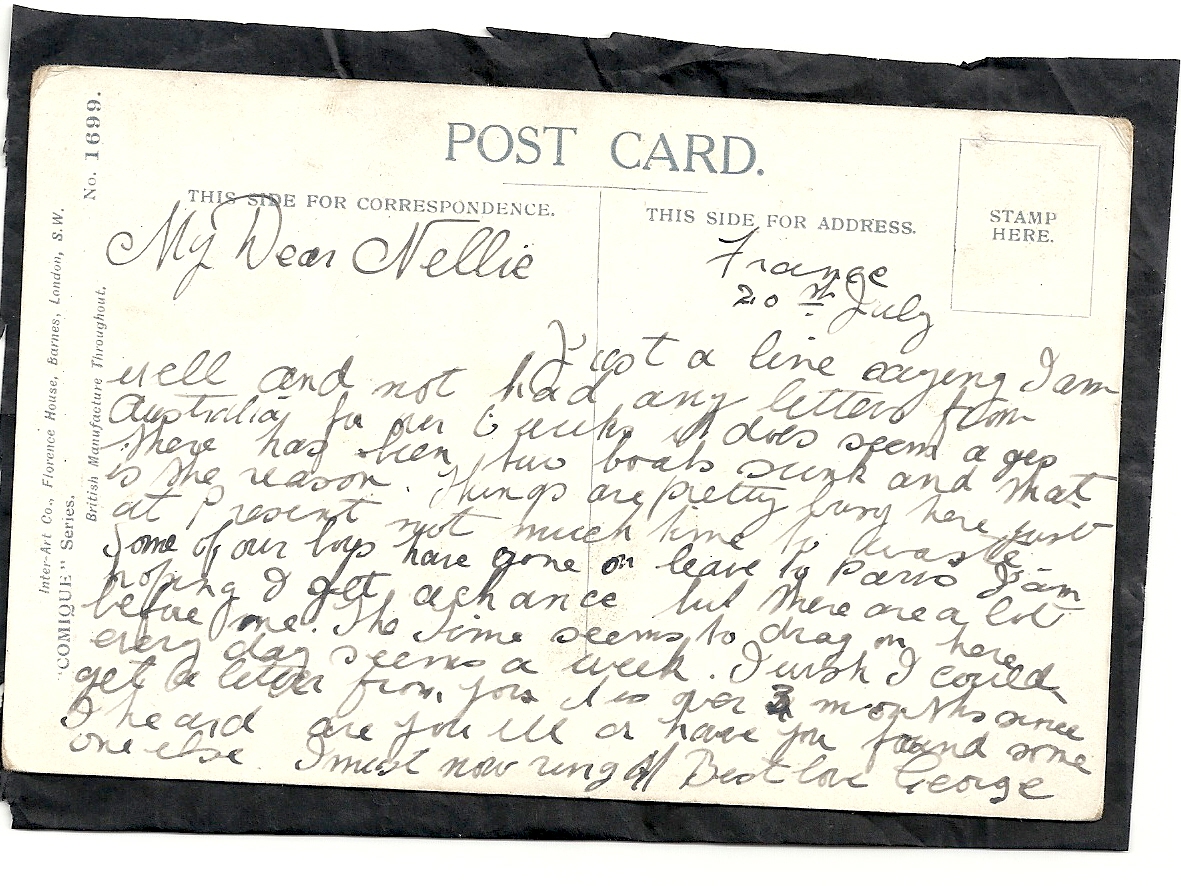 POST CARD.
THIS SIDE FOR CORRESPONDENCE.
THIS SIDE FOR ADDRESS.
STAMP
HERE.
No. 1699.
Inter-Art Co., Florence House, Barnes, London, S.W.
"COMIQUE" Series.
British Manufacture Throughout.
My Dear Nellie
France
20th July
Just a line saying I am
well and not had any letters from
Australia for over 6 weeks it does seem ages
there has been two boats sunk and that
is the reason. Things are pretty here just
at Present not much time to waste
Some of our boys have gone on leave to Paris I am
hoping I get a chance but there are a lot
before me. The time seems to drag on here
every day seems a week. I wish I could
get a letter from you it is over 3 months since
I heard are you ill or have you found some
one else. I must now ring off Best love George